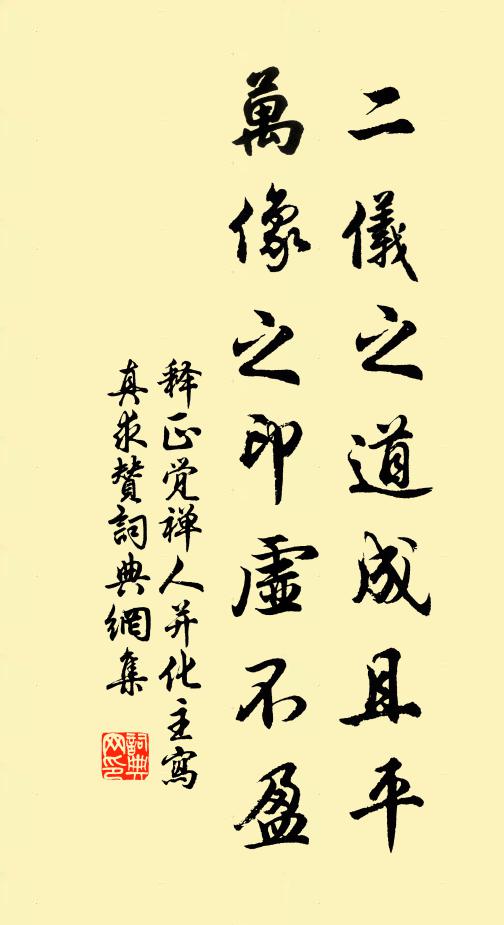 二儀之道成且平
萬像之印虛不盈
释正觉禅人并化主寫
真求贊詞典網集
詞典網印